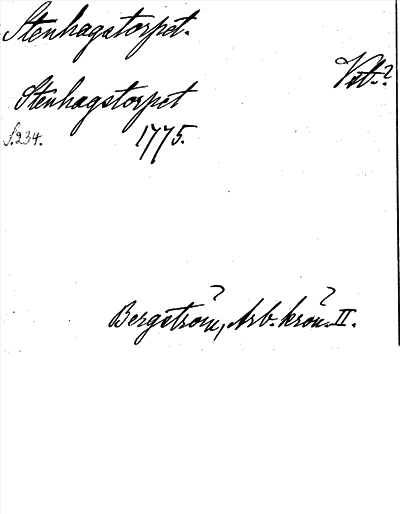 Stenhagstorpet.
Vst.?
Stenhagstorpet
S.234. 1775.
Bergström, Arb. krön. II.